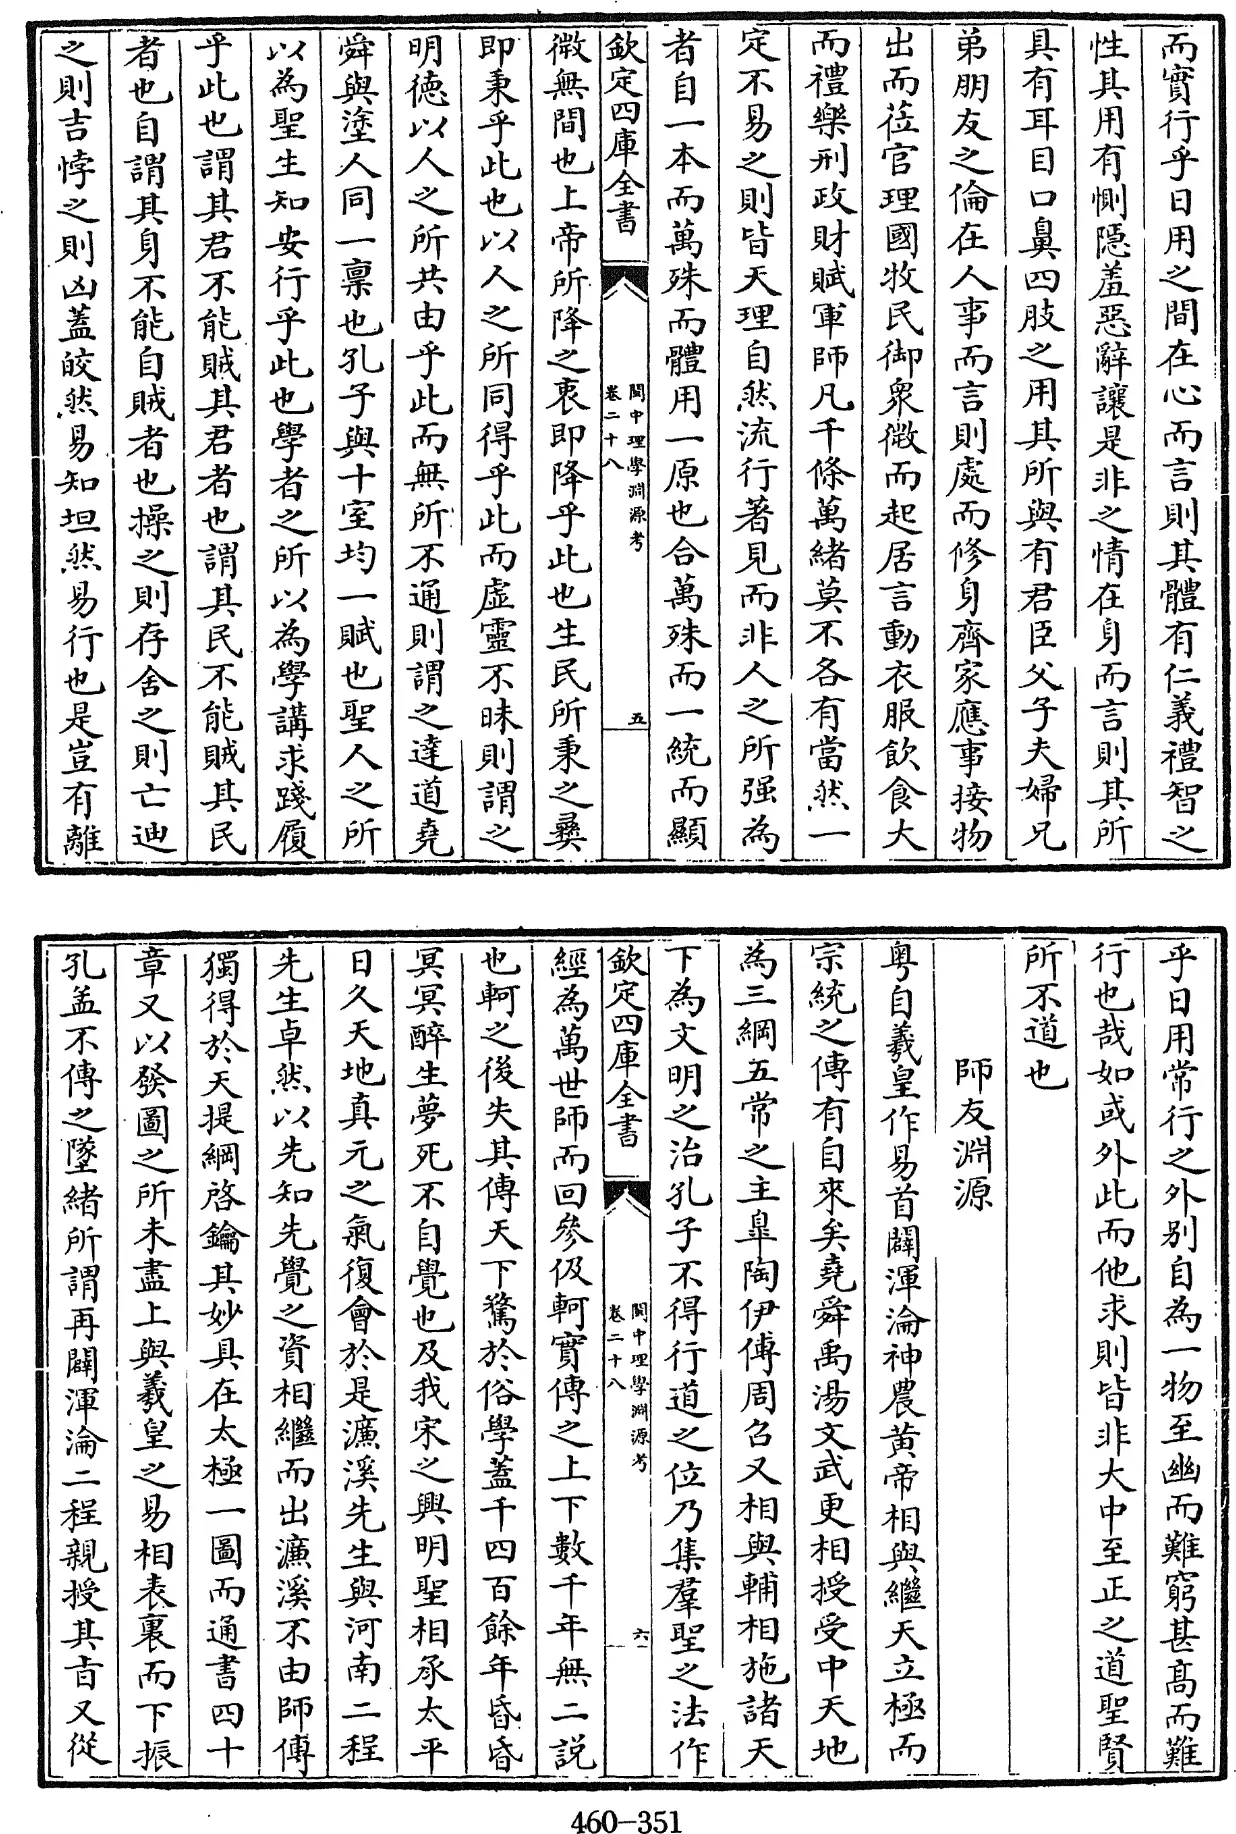 而實行乎日用之間在心而言則其體有仁義禮智之
性其用有惻隱羞惡辭讓是非之情在身而言則其所
具有耳目口鼻四肢之用其所與有君臣父子夫婦兄
弟朋友之倫在人事而言則處而修身齊家應事接物
出而莅官理國牧民御衆微而起居言動衣服飲食大
而禮樂刑政財賦軍師凡千條萬緒莫不各有當然一
定不易之則皆天理自然流行著見而非人之所强為
者自一本而萬殊而體用一原也合萬殊而一統而顯
欽定四庫全書
閩中理學淵源考
卷二十八
五
微無間也上帝所降之衷即降乎此也生民所秉之彞
即秉乎此也以人之所同得乎此而虛靈不昧則謂之
明德以人之所共由乎此而無所不通則謂之達道堯
舜與塗人同一稟也孔子與十室均一賦也聖人之所
以為聖生知安行乎此也學者之所以為學講求踐履
乎此也謂其君不能賊其君者也謂其民不能賊其民
者也自謂其身不能自賊者也操之則存舍之則亡迪
之則吉悖之則凶蓋皎然易知坦然易行也是豈有離
乎日用常行之外别自為一物至幽而難窮甚高而難
行也哉如或外此而他求則皆非大中至正之道聖賢
所不道也
師友淵源
粤自羲皇作易首闢渾淪神農黄帝相與繼天立極而
宗統之傳有自來矣堯舜禹湯文武更相授受中天地
為三綱五常之主臯陶伊傅周召又相與輔相施諸天
下為文明之治孔子不得行道之位乃集羣聖之法作
欽定四庫全書
閩中理學淵源考
卷二十八
六
經為萬世師而回參伋軻實傳之上下數千年無二説
也軻之後失其傳天下騖於俗學蓋千四百餘年昏昏
冥冥醉生夢死不自覺也及我宋之興明聖相承太平
日久天地真元之氣復會於是濂溪先生與河南二程
先生卓然以先知先覺之資相繼而出濂溪不由師傳
獨得於天提綱啓鑰其妙具在太極一圖而通書四十
章又以發圖之所未盡上與羲皇之易相表裏而下振
孔孟不傳之墜緒所謂再闢渾淪二程親授其旨又從
460-351